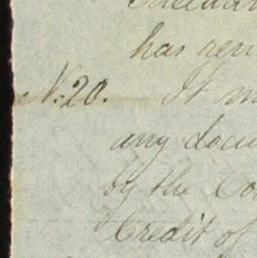 has ren
N. 20. It m
any docu
by the Co
Credit of